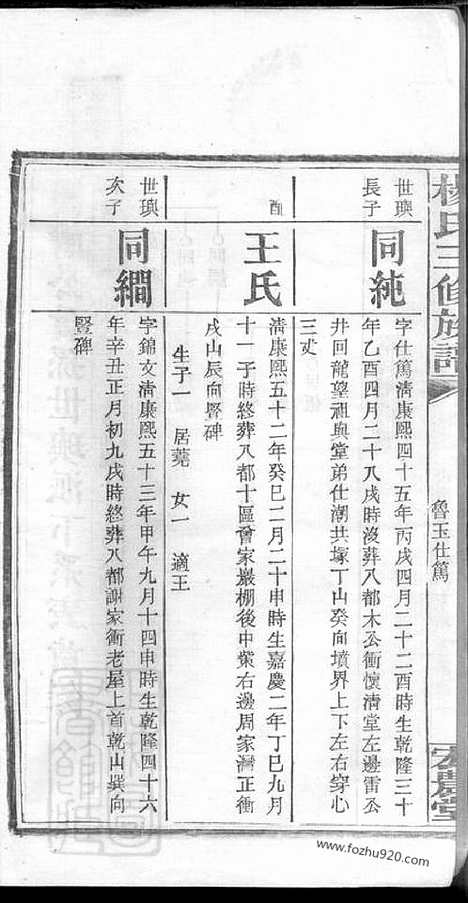 楊氏三修族譜
魯玉仕篤
宏農堂
世璵
長子
同純
字仕篤清康熙四十五年丙戌四月二十二酉時生乾隆三十
年乙酉四月二十八戌時沒葬八都木公衝懷清堂左邊雷公
井回龍望祖與堂弟仕潮共塚丁山癸向墳界上下左右穿心
三丈
配
王氏
清康熙五十二年癸巳二月二十申時生嘉慶二年丁巳九月
十一子時終葬八都十區曾家巖棚後中紫右邊周家灣正衝
戌山辰向豎碑
生子一 居蕘 女一 適王
世璵
次子
同繝
字錦文清康熙五十三年甲午九月十四申時生乾隆四十六
年辛丑正月初九戌時終葬八都謝家衝老屋上首乾山撰向
豎碑
www.fozhu920.com